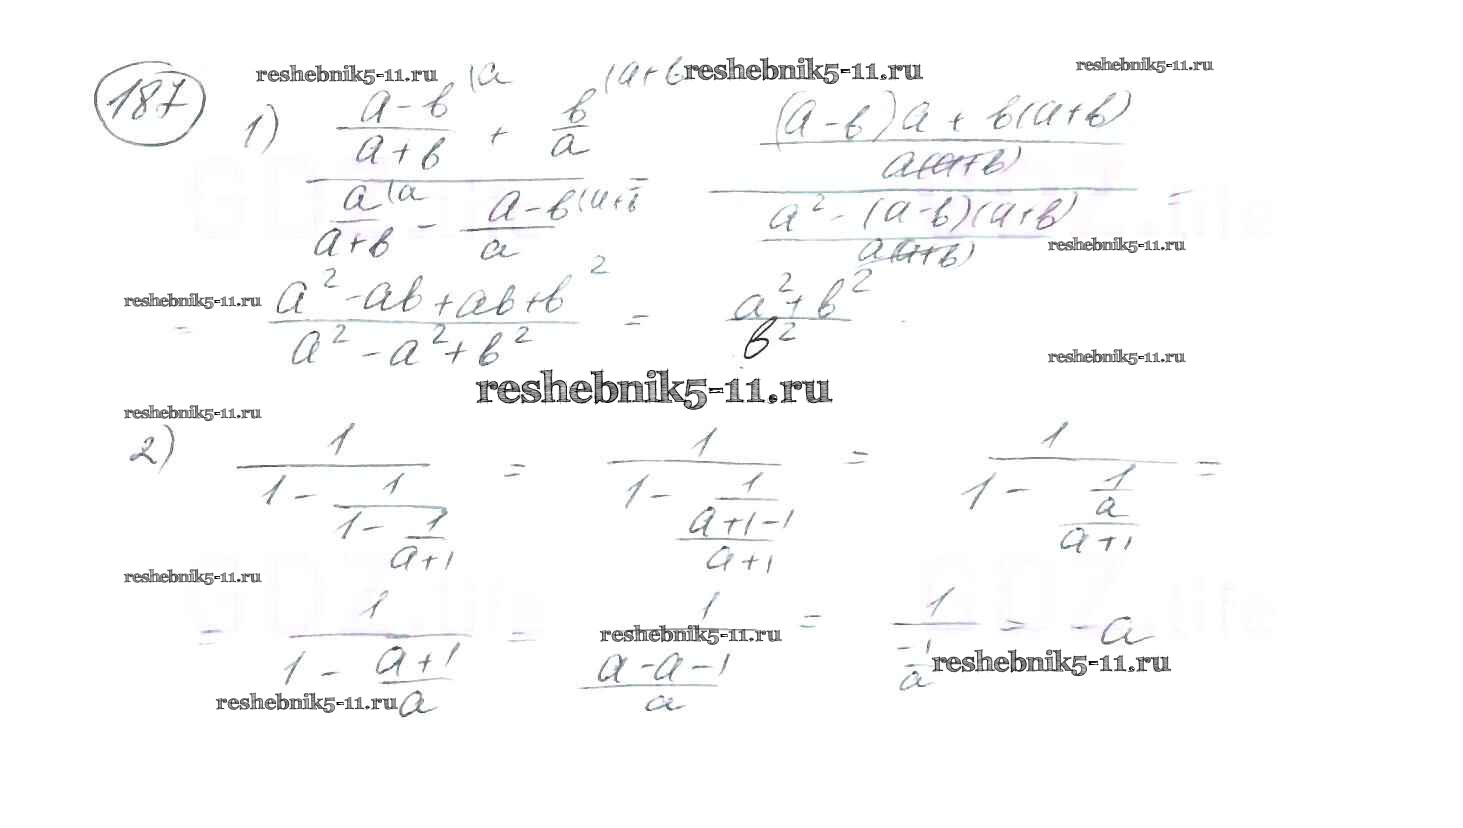 187
reshebnik5-11.ru reshebnik5-11.ru reshebnik5-11.ru
1) ((a-в)/(a+в) (a + в/a (a+в) / (a/(a+в) (a - (a-в)/a (a+в) = (((a-в)a + в(a+в))/(a(a+в))) / ((a² - (a-в)(a+в))/(a(a+в))) =
reshebnik5-11.ru
reshebnik5-11.ru
= (a² - aв + aв + в²)/(a² - a² + в²) = (a² + в²)/в²
reshebnik5-11.ru
reshebnik5-11.ru
reshebnik5-11.ru
2) 1/(1 - 1/(1 - 1/(a+1))) = 1/(1 - 1/((a+1-1)/(a+1))) = 1/(1 - (1/a)/(a+1)) =
reshebnik5-11.ru
= 1/(1 - (a+1)/a) = 1/((a-a-1)/a) = 1/(-1/a) = -a
reshebnik5-11.ru
reshebnik5-11.ru
reshebnik5-11.ru